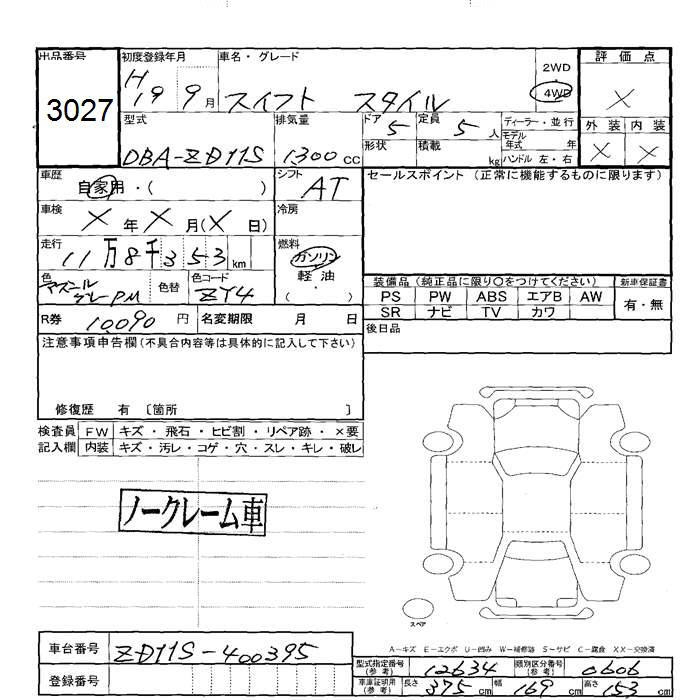 出品番号
3027
初度登録年月
H19 9月
車名・グレード
スイフト スタイル
2WD
4WD
評価点
×
外装 内装
× ×
型式
DBA-ZD11S
排気量
1300cc
ドア
5
定員
5人
形状
積載
kg
ディーラー・並行
モデル年式 年
ハンドル 左・右
車歴
自家用・( )
シフト
AT
セールスポイント (正常に機能するものに限ります)
車検
×年×月(×日)
冷房
走行
11万8千353km
燃料
ガソリン
軽油
( )
色
グレーPM
色替
色コード
ZY4
装備品 (純正品に限り○をつけてください)
PS PW ABS エアB AW
SR ナビ TV カワ
新車保証書
有・無
R券 10090円
名変期限 月 日
後日品
注意事項申告欄(不具合内容等は具体的に記入して下さい)
修復歴 有 〔箇所 〕
検査員 FW キズ・飛石・ヒビ割・リペア跡・×要
記入欄 内装 キズ・汚レ・コゲ・穴・スレ・キレ・破レ
ノークレーム車
スペア
A-キズ E-エクボ U-凹み W-補修跡 S-サビ C-腐食 XX-交換済
車台番号 ZD11S-400395
登録番号
型式指定番号(参考) 12634
類別区分番号(参考) 0606
車庫証明用(参考) 長さ 375cm 幅 169cm 高さ 153cm